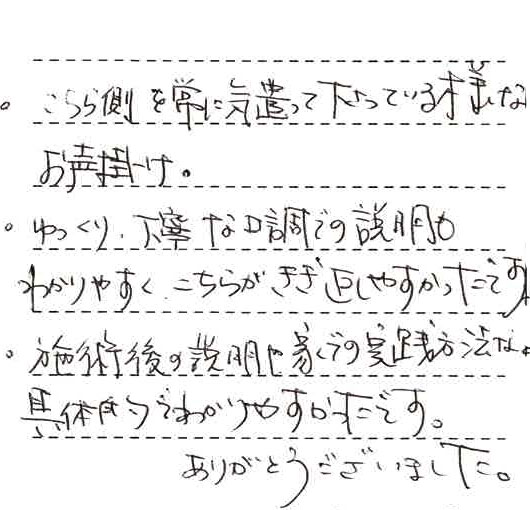 。こちら側を常に気遣って下さっている様な
お声掛け。
。ゆっくり、丁寧な口調での説明も
わかりやすく、こちらがきき返しやすかったです
。施術後の説明や家での実践方法など
具体的でわかりやすかったです。
ありがとうございました。